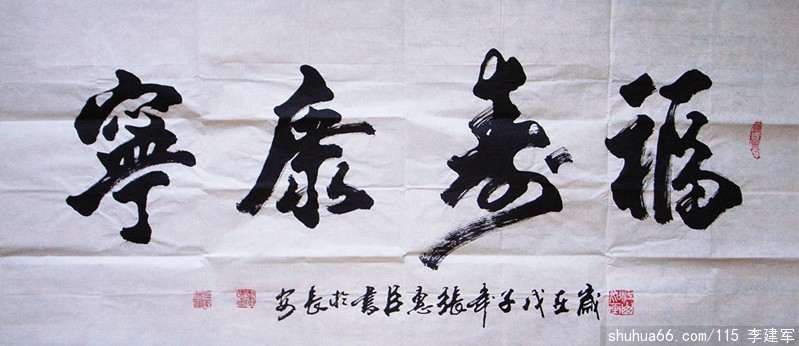 福壽康寧
歲在戊子年張惠臣書於長安
shuhua66.com/115 李建军